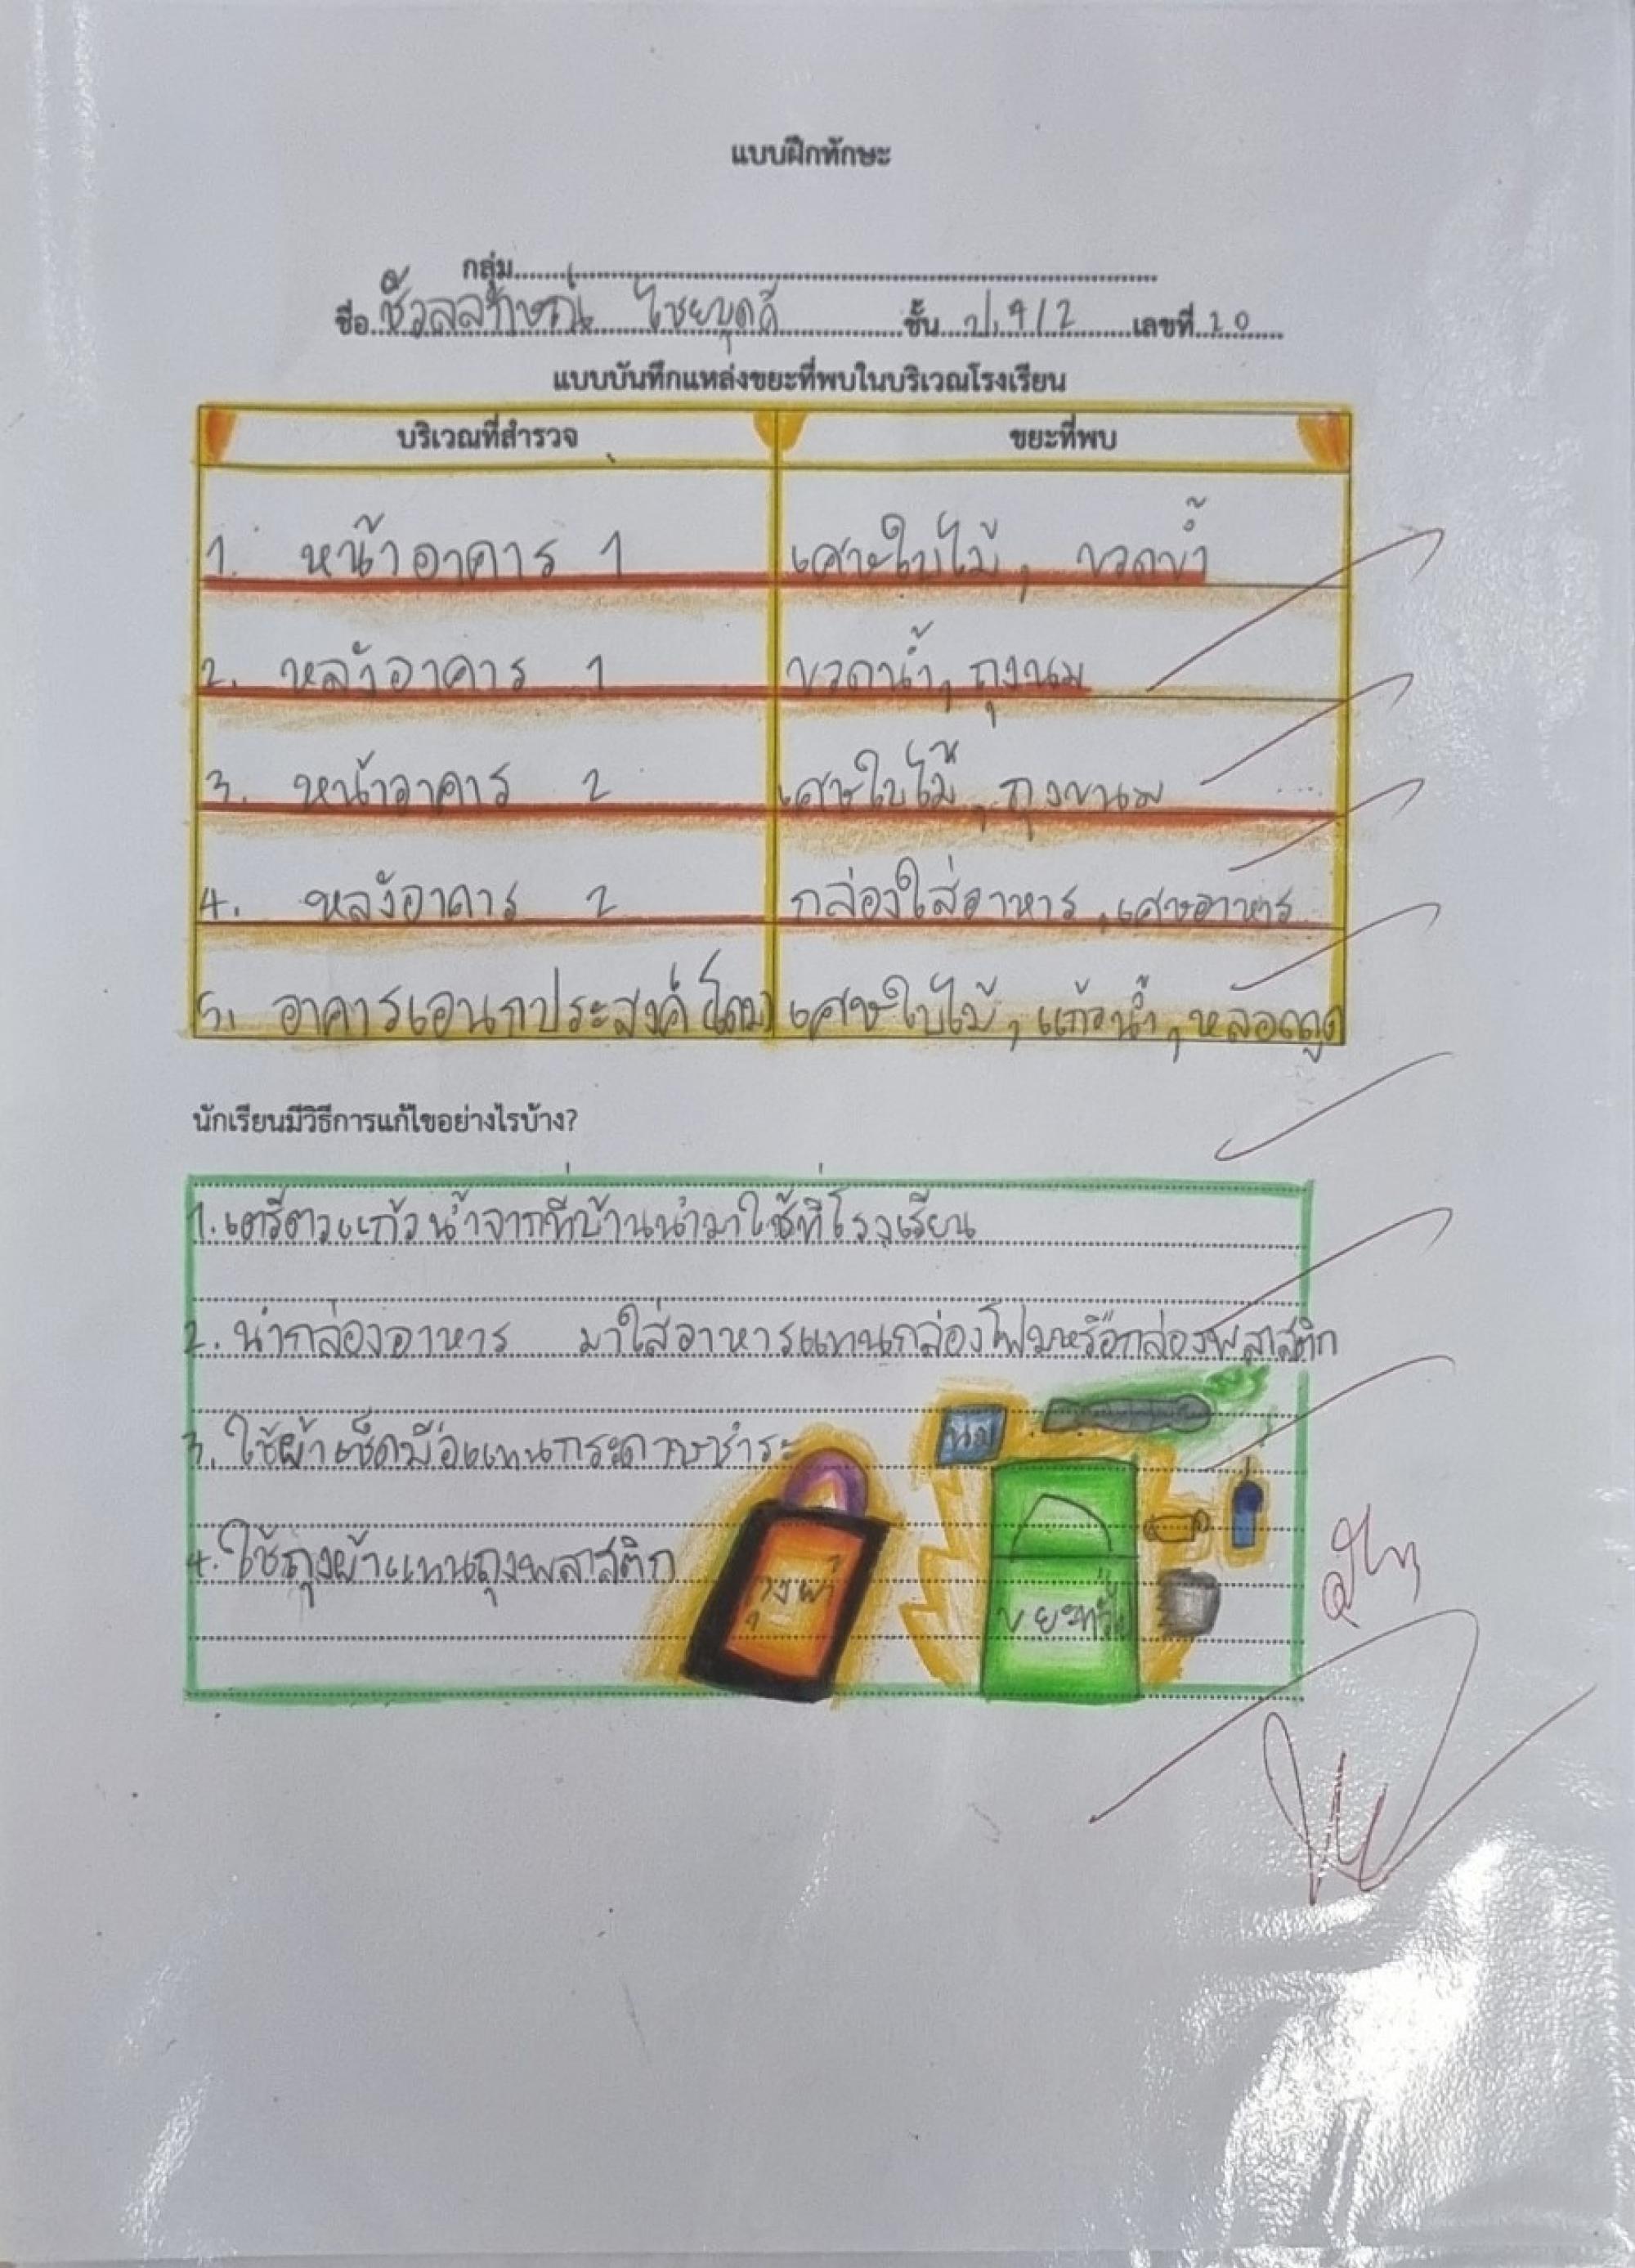 แบบฝึกทักษะ
กลุ่ม
ชื่อ ชีวลลักษณ์ ไชยบุดดี ชั้น ป.4/2 เลขที่ 20
แบบบันทึกแหล่งขยะที่พบในบริเวณโรงเรียน
บริเวณที่สำรวจ ขยะที่พบ
1. หน้าอาคาร 1 เศษใบไม้, ขวดน้ำ
2. หลังอาคาร 1 ขวดน้ำ, ถุงนม
3. หน้าอาคาร 2 เศษใบไม้, ถุงขนม
4. หลังอาคาร 2 กล่องใส่อาหาร, เศษอาหาร
5. อาคารเอนกประสงค์ (โดม) เศษใบไม้, แก้วน้ำ, หลอดดูด
นักเรียนมีวิธีการแก้ไขอย่างไรบ้าง?
1. เตรีตวแก้วน้ำจากที่บ้านนำมาใช้ที่โรงเรียน
2. นำกล่องอาหาร มาใส่อาหารแทนกล่องโฟมหรือกล่องพลาสติก
3. ใช้ผ้าเช็ดมือแทนกระดาษชำระ
4. ใช้ถุงผ้าแทนถุงพลาสติก
นม
ถุงผ้า